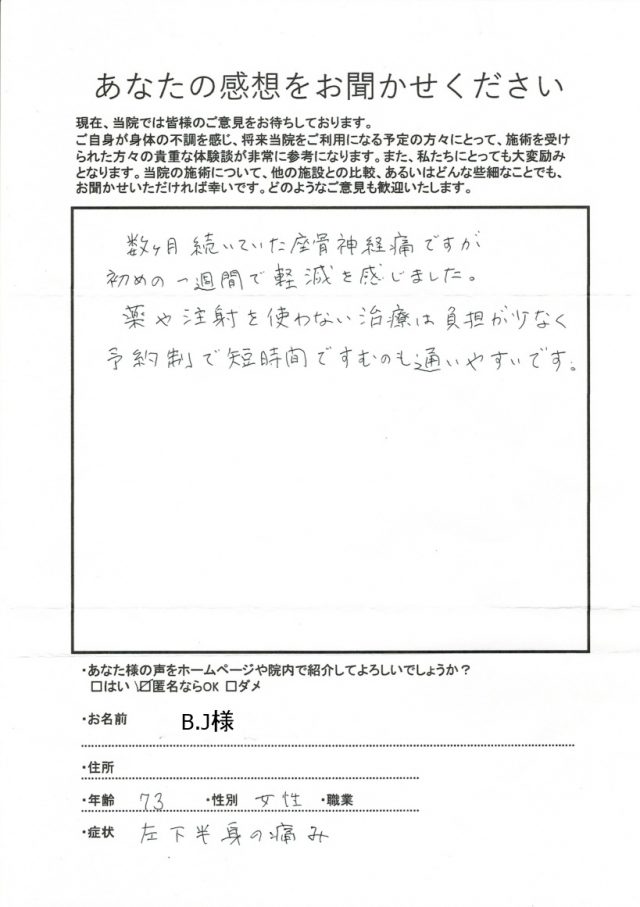 あなたの感想をお聞かせください
現在、当院では皆様のご意見をお待ちしております。
ご自身が身体の不調を感じ、将来当院をご利用になる予定の方々にとって、施術を受け
られた方々の貴重な体験談が非常に参考になります。また、私たちにとっても大変励み
となります。当院の施術について、他の施設との比較、あるいはどんな些細なことでも、
お聞かせいただければ幸いです。どのようなご意見も歓迎いたします。
数ヶ月続いていた座骨神経痛ですが
初めの一週間で軽減を感じました。
薬や注射を使わない治療は負担が少なく
予約制で短時間ですむのも通いやすいです。
・あなた様の声をホームページや院内で紹介してよろしいでしょうか？
□はい ☑匿名ならOK □ダメ
・お名前 B.J様
・住所
・年齢 73 ・性別 女性 ・職業
・症状 左下半身の痛み